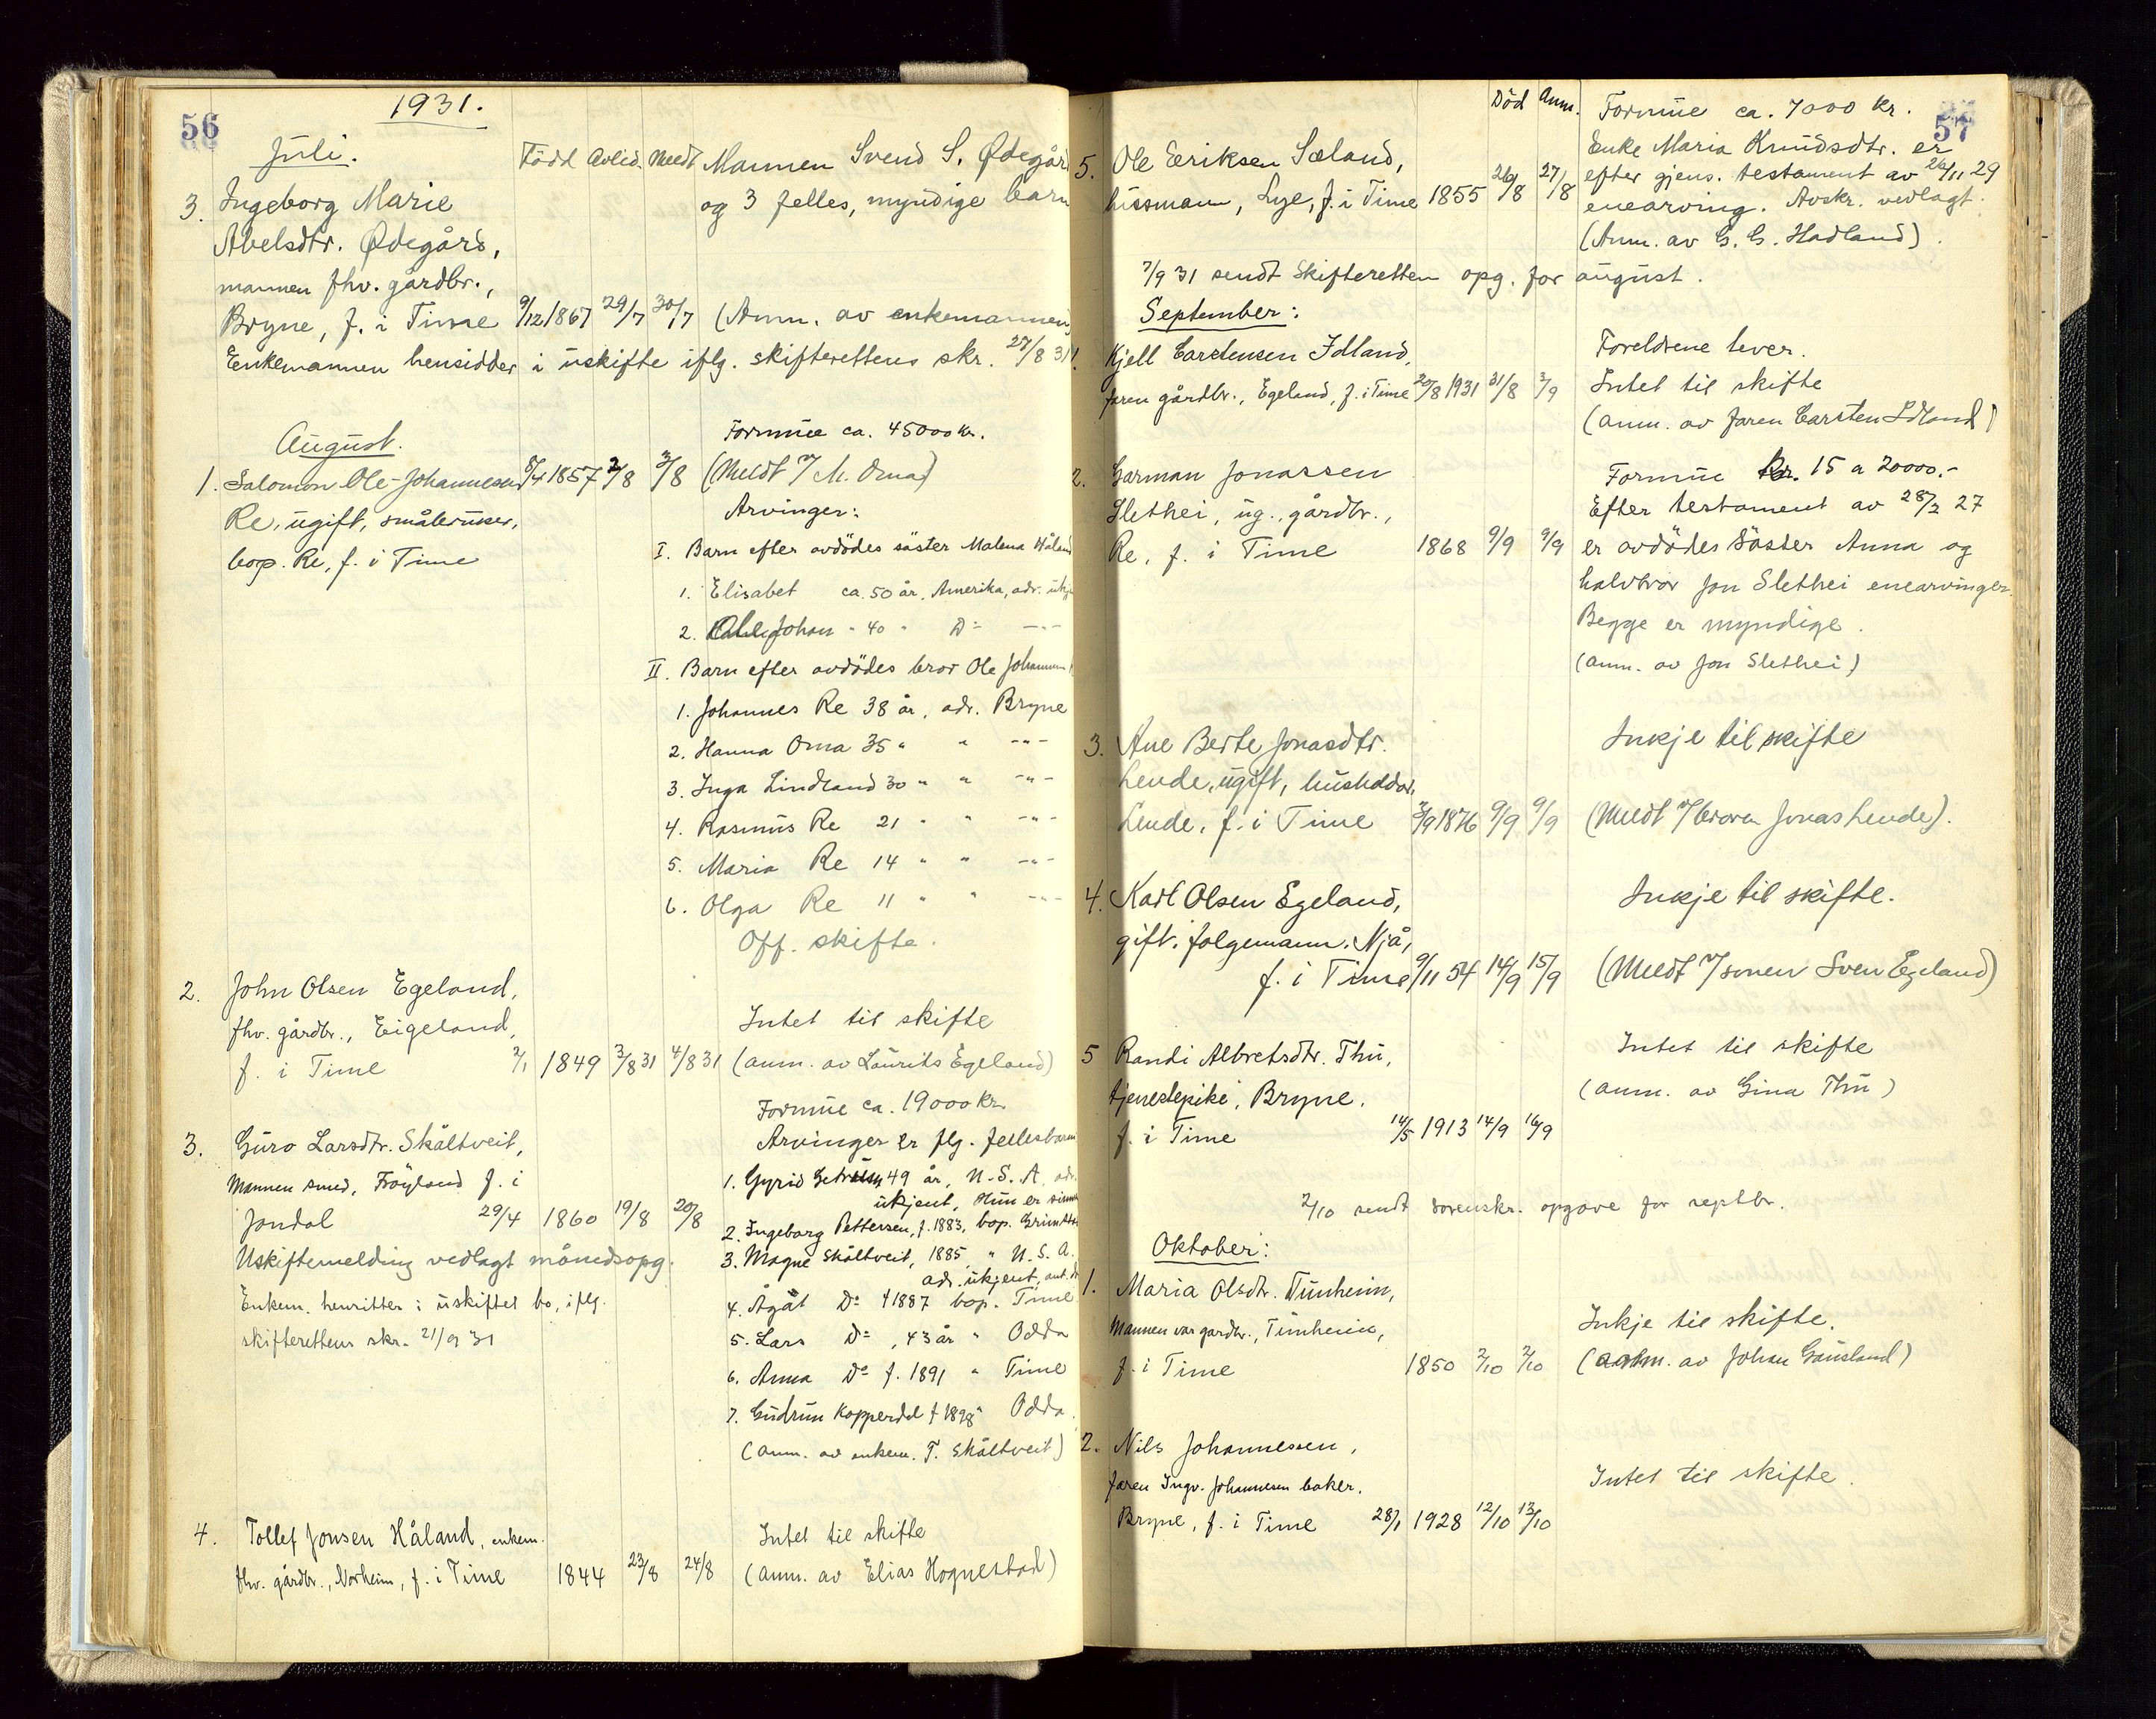 56
1931.
Juli.
Född Avlid. Meldt
Mannen Svend S. Ødegård
3. Ingeborg Marie
og 3 felles, myndige barn
Abelsdtr. Ødegård,
mannen fhv. gårdbr.,
Bryne, f. i Time 9/12 1867 29/7 30/7 (Anm. av enkemannen)
Enkemannen hensidder i uskifte iflg. skifterettens skr. 27/8 31
August.
Formue ca. 45000 kr.
1. Salomon Ole-Johannesen 8/4 1857 2/8 3/8 (Meldt v/ M. Oma)
Re, ugift, småbruker,
Arvinger:
bop. Re, f. i Time
I. Barn efter avdödes söster Malena Håland
1. Elisabet ca. 50 år, Amerika, adr. ukj
2. Johan " 40 " Do -"-
II. Barn efter avdödes bror Ole Johannes
1. Johannes Re 38 år, adr. Bryne
2. Hanna Oma 35 " " -"-
3. Inga Lindland 30 " " -"-
4. Rasmus Re 21 " " -"-
5. Maria Re 14 " " -"-
6. Olga Re 11 " " -"-
Off. skifte.
2. John Olsen Egeland,
fhv. gårdbr., Eigeland,
Intet til skifte
f. i Time 2/1 1849 3/8 31 4/8 31 (anm. av Laurits Egeland)
Formue ca. 19000 kr.
3. Guro Larsdtr. Skåltveit,
Arvinger er flg. fellesbarn
Mannen smed, Fröyland f. i
1. Gyrid 49 år, U.S.A. adr.
ukjent, Hun er
Jondal 29/4 1860 19/8 20/8
2. Ingeborg Pettersen, f. 1883, bop.
Uskiftemelding vedlagt månedsopg.
3. Magne Skåltveit, 1885, " U.S.A.
adr. ukjent,
Enkem. hensitter i uskiftet bo, iflg.
4. Ågåt Do f 1887 bop. Time
skifterettens skr. 21/9 31
5. Lars Do , 43 år " Odda
6. Anna Do f. 1891 " Time
7. Gudrun Kopperdal f 1898 " Odda
(anm. av enkem. T. Skåltveit)
4. Tollef Jonsen Håland, enkem.
Intet til skifte
fhv. gårdbr., Norheim, f. i Time 1844 23/8 24/8 (anm. av Elias Hognestad)
57
Död Anm.
Formue ca. 7000 kr.
5. Ole Eeriksen Sæland,
Enke Maria Knudsdtr. er
husmann, Lye, f. i Time 1855 26/8 27/8 efter gjens. testament av 26/11 29
enearving. Avskr. vedlagt.
(Anm. av G. G. Hadland).
7/9 31 sendt skifteretten opg. for august.
September:
1. Kjell Carstensen Idland,
Foreldrene lever.
faren gårdbr., Egeland, f. i Time 20/8 1931 31/8 3/9 Intet til skifte
(anm. av faren Carsten Idland)
2. Garman Jonassen
Formue kr. 15 a 20000.-
Slethei, ug., gårdbr.,
Efter testament av 28/2 27
Re, f. i Time 1868 9/9 9/9 er avdödes söster Anna og
halvbror Jon Slethei enearvinger.
Begge er myndige.
(anm. av Jon Slethei)
3. Ane Berte Jonasdtr.
Inkje til skifte
Lende, ugift, husholder.
Lende, f. i Time 3/9 1876 9/9 9/9 (Meldt v/ broren Jonas Lende).
4. Karl Olsen Egeland,
Inkje til skifte.
gift, folgemann. Njå,
f. i Time 9/11 54 14/9 15/9 (Meldt v/ sonen Sven Egeland)
5 Randi Albretsdtr. Thu,
Intet til skifte
tjenestepike, Bryne.
(anm. av Gina Thu)
f. i Time 14/5 1913 14/9 16/9
2/10 sendt sorenskr. opgave for septbr.
Oktober:
1. Maria Olsdtr. Tunheim,
Mannen var gardbr., Tunheim,
Inkje til skifte.
f. i Time 1850 2/10 2/10 (anm. av Johan Gausland)
2. Nils Johannessen,
faren Ingv. Johannesen baker.
Intet til skifte.
Bryne, f. i Time 28/1 1928 12/10 13/10